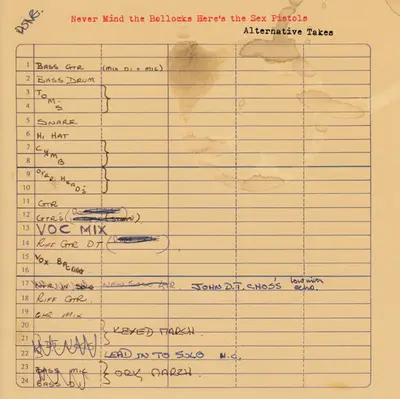 DONE.
Never Mind the Bollocks Here's the Sex Pistols
Alternative Takes
1 BASS GTR (MIX DI + MIC)
2 BASS DRUM
3 TOM'S
4
5 SNARE
6 HI HAT
7 CYMB
8
9 OVER HEAD'S
10
11 GTR
12 GTR'S
13 VOC MIX
14 RIFF GTR DT
15 VOX
16
17 SOLO NEW SOLO GTR JOHN D.T. CHOS'S
18 RIFF GTR.
19 MIX
20 KEYED MARCH.
21
22 LEAD IN TO SOLO
23 BASS MIC MARCH.
24 BASS DI